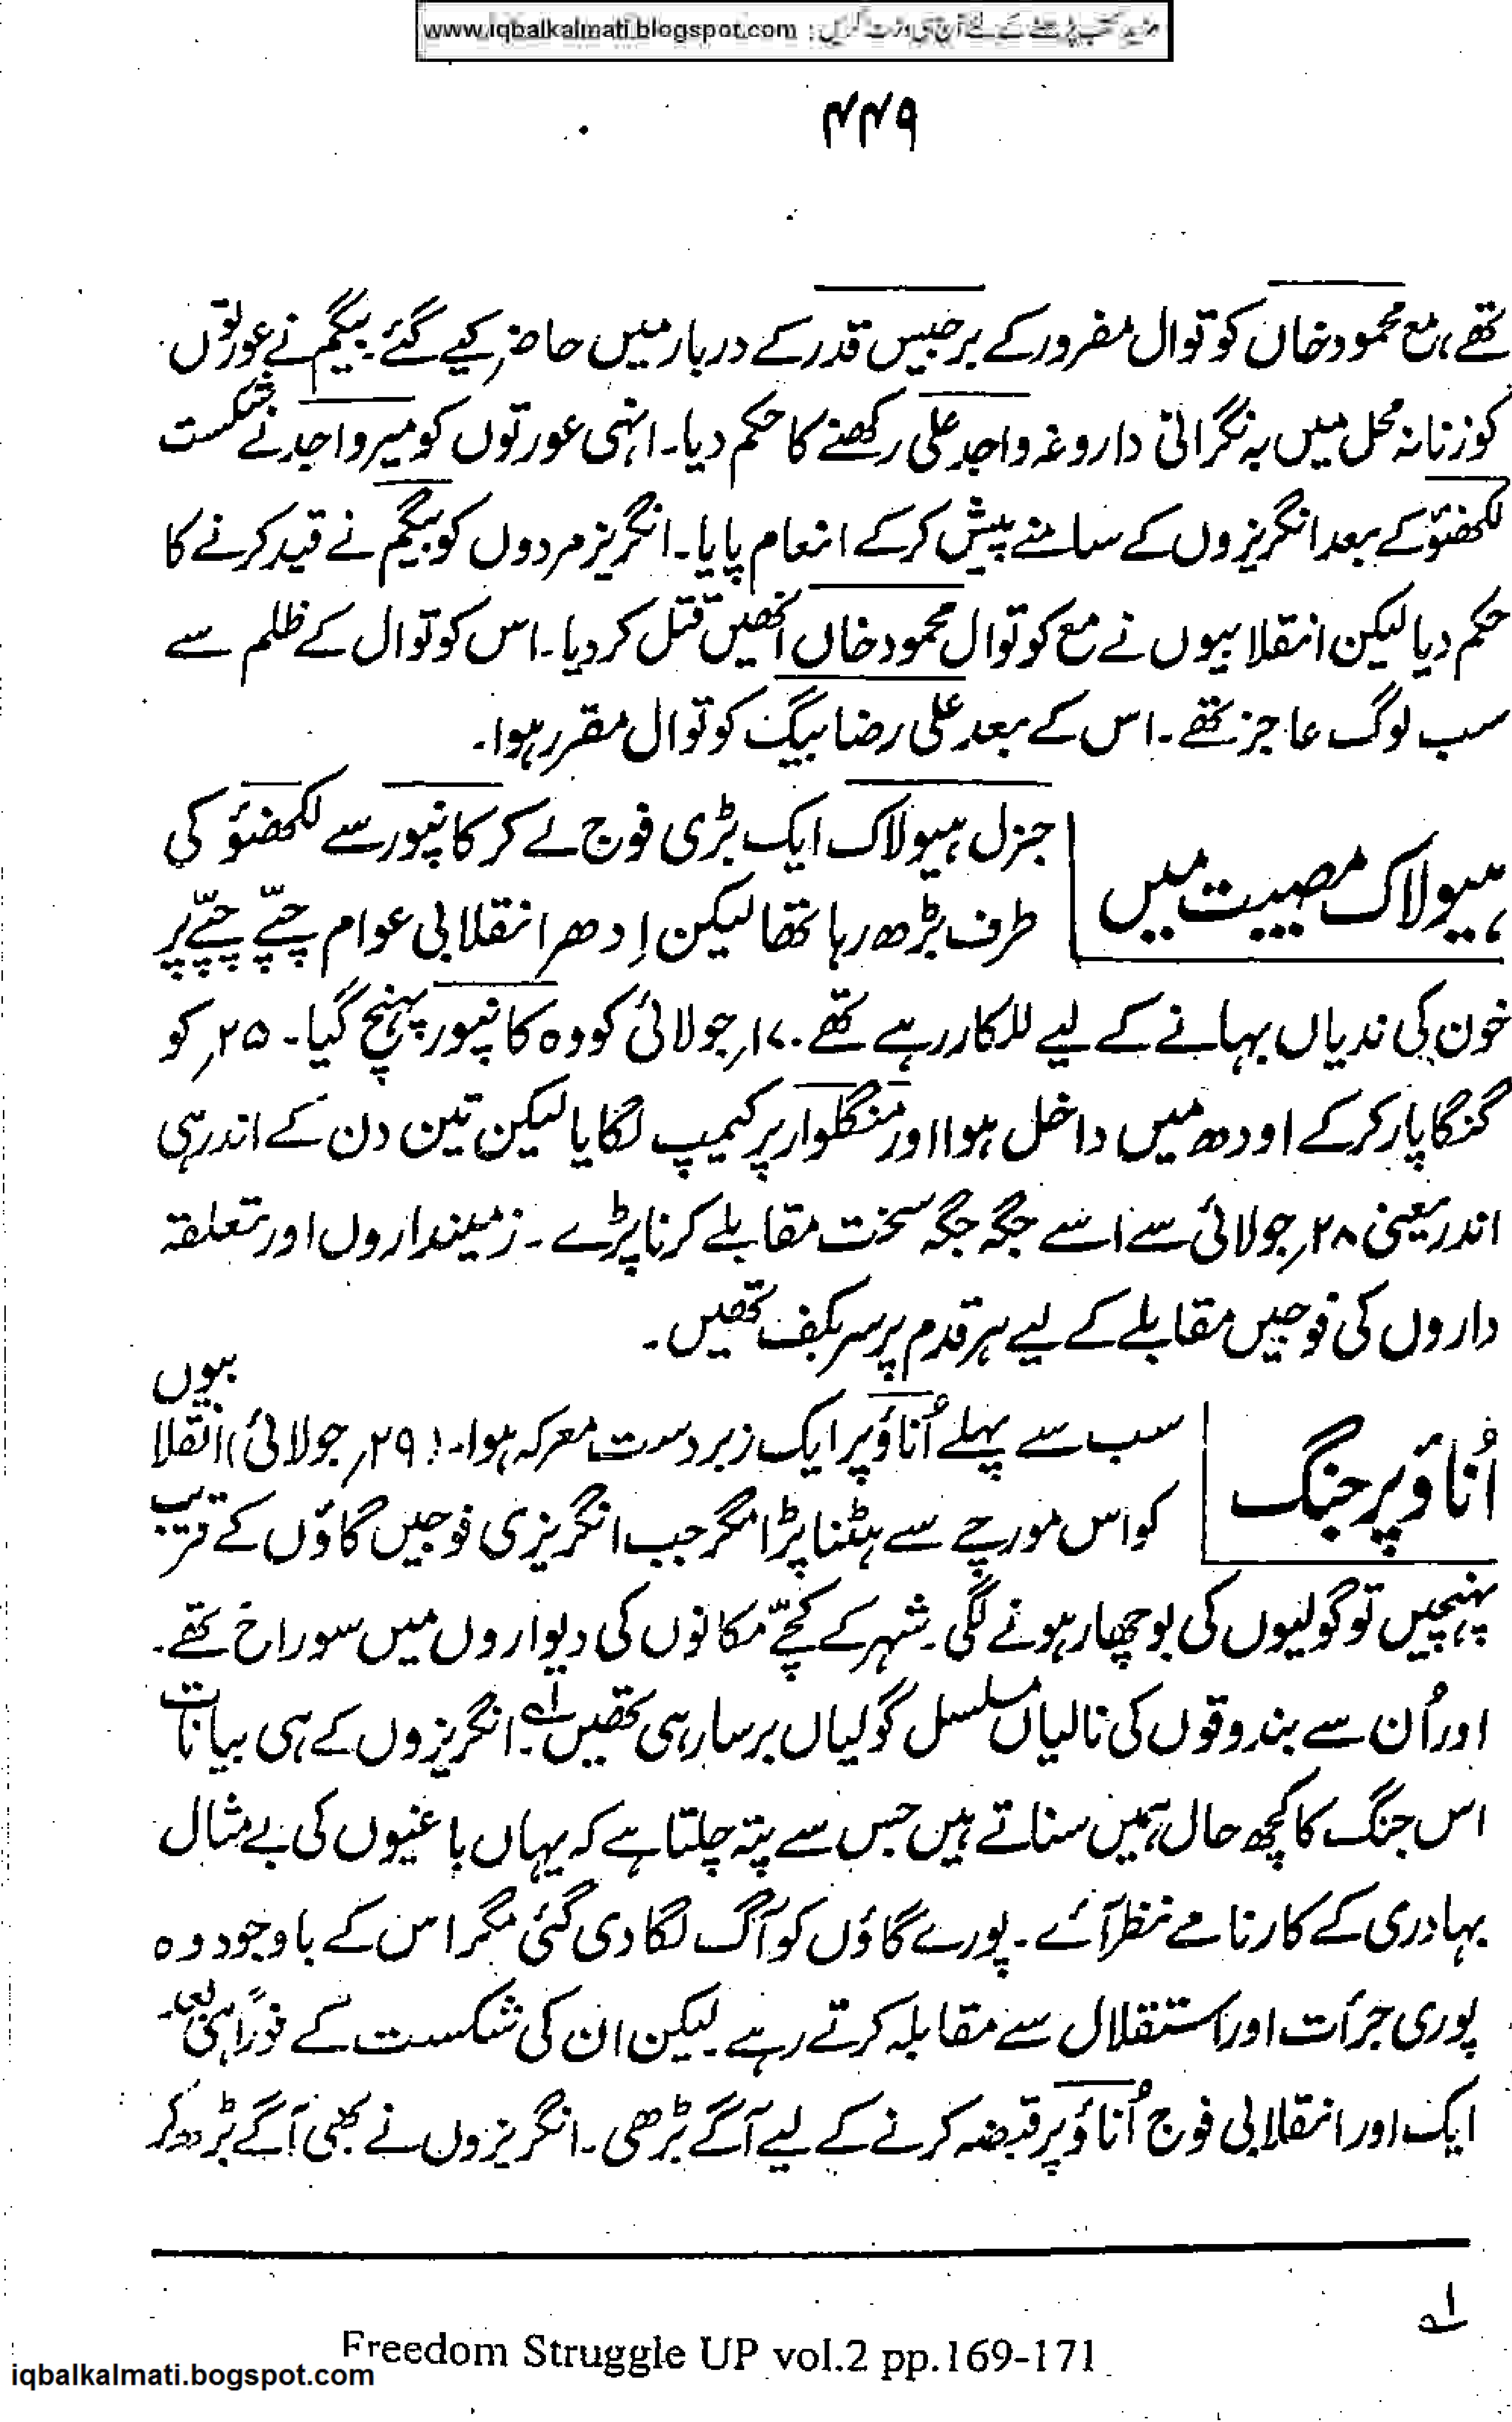 مزید کتب پڑھنے کے لئے آج ہی وزٹ کریں : www.iqbalkalmati.blogspot.com
۴۴۹
تھے، مع محمود خاں کوتوال مفرور کے برجیس قدر کے دربار میں حاضر کیے گئے۔ بیگم نے عورتوں
کو زنانہ محل میں بہ نگرانی داروغہ واجد علی رکھنے کا حکم دیا۔ انہی عورتوں کو میر واجد نے شکست
لکھنؤ کے بعد انگریزوں کے سامنے پیش کرکے انعام پایا۔ انگریز مردوں کو بیگم نے قید کرنے کا
حکم دیا لیکن انقلابیوں نے مع کوتوال محمود خاں انھیں قتل کر دیا۔ اس کوتوال کے ظلم سے
سب لوگ عاجز تھے۔ اس کے بعد علی رضا بیگ کوتوال مقرر ہوا۔
ہیولاک مصیبت میں
جنرل ہیولاک ایک بڑی فوج لے کر کانپور سے لکھنؤ کی
طرف بڑھ رہا تھا لیکن اِدھر انقلابی عوام چپّے چپّے پر
خون کی ندیاں بہانے کے لیے للکار رہے تھے۔ ۱۷؍جولائی کو وہ کانپور پہنچ گیا۔ ۲۵؍ کو
گنگا پار کرکے اودھ میں داخل ہوا اور منگلوار پر کیمپ لگایا لیکن تین دن کے اندر ہی
اندر یعنی ۲۸؍جولائی سے اسے جگہ جگہ سخت مقابلے کرنا پڑے۔ زمینداروں اور تعلقہ
داروں کی فوجیں مقابلے کے لیے ہر قدم پر سر بکف تھیں۔
اُناؤ پر جنگ
سب سے پہلے اُناؤ پر ایک زبردست معرکہ ہوا۔ (۲۹؍ جولائی) انقلابیوں
کو اس مورچے سے ہٹنا پڑا مگر جب انگریزی فوجیں گاؤں کے قریب
پہنچیں تو گولیوں کی بوچھار ہونے لگی۔ شہر کے کچّے مکانوں کی دیواروں میں سوراخ تھے۔
اور اُن سے بندوقوں کی نالیاں مسلسل گولیاں برسا رہی تھیں۱؎۔ انگریزوں کے ہی بیانات
اس جنگ کا کچھ حال ہمیں سناتے ہیں جس سے پتہ چلتا ہے کہ یہاں باغیوں کی بے مثال
بہادری کے کارنامے نظر آئے۔ پورے گاؤں کو آگ لگا دی گئی مگر اس کے باوجود وہ
پوری جرأت اور استقلال سے مقابلہ کرتے رہے۔ لیکن ان کی شکست کے فوراً ہی بعد
ایک اور انقلابی فوج اُناؤ پر قبضہ کرنے کے لیے آگے بڑھی۔ انگریزوں نے بھی آگے بڑھ کر
۱؎
Freedom Struggle UP vol.2 pp.169-171
iqbalkalmati.bogspot.com